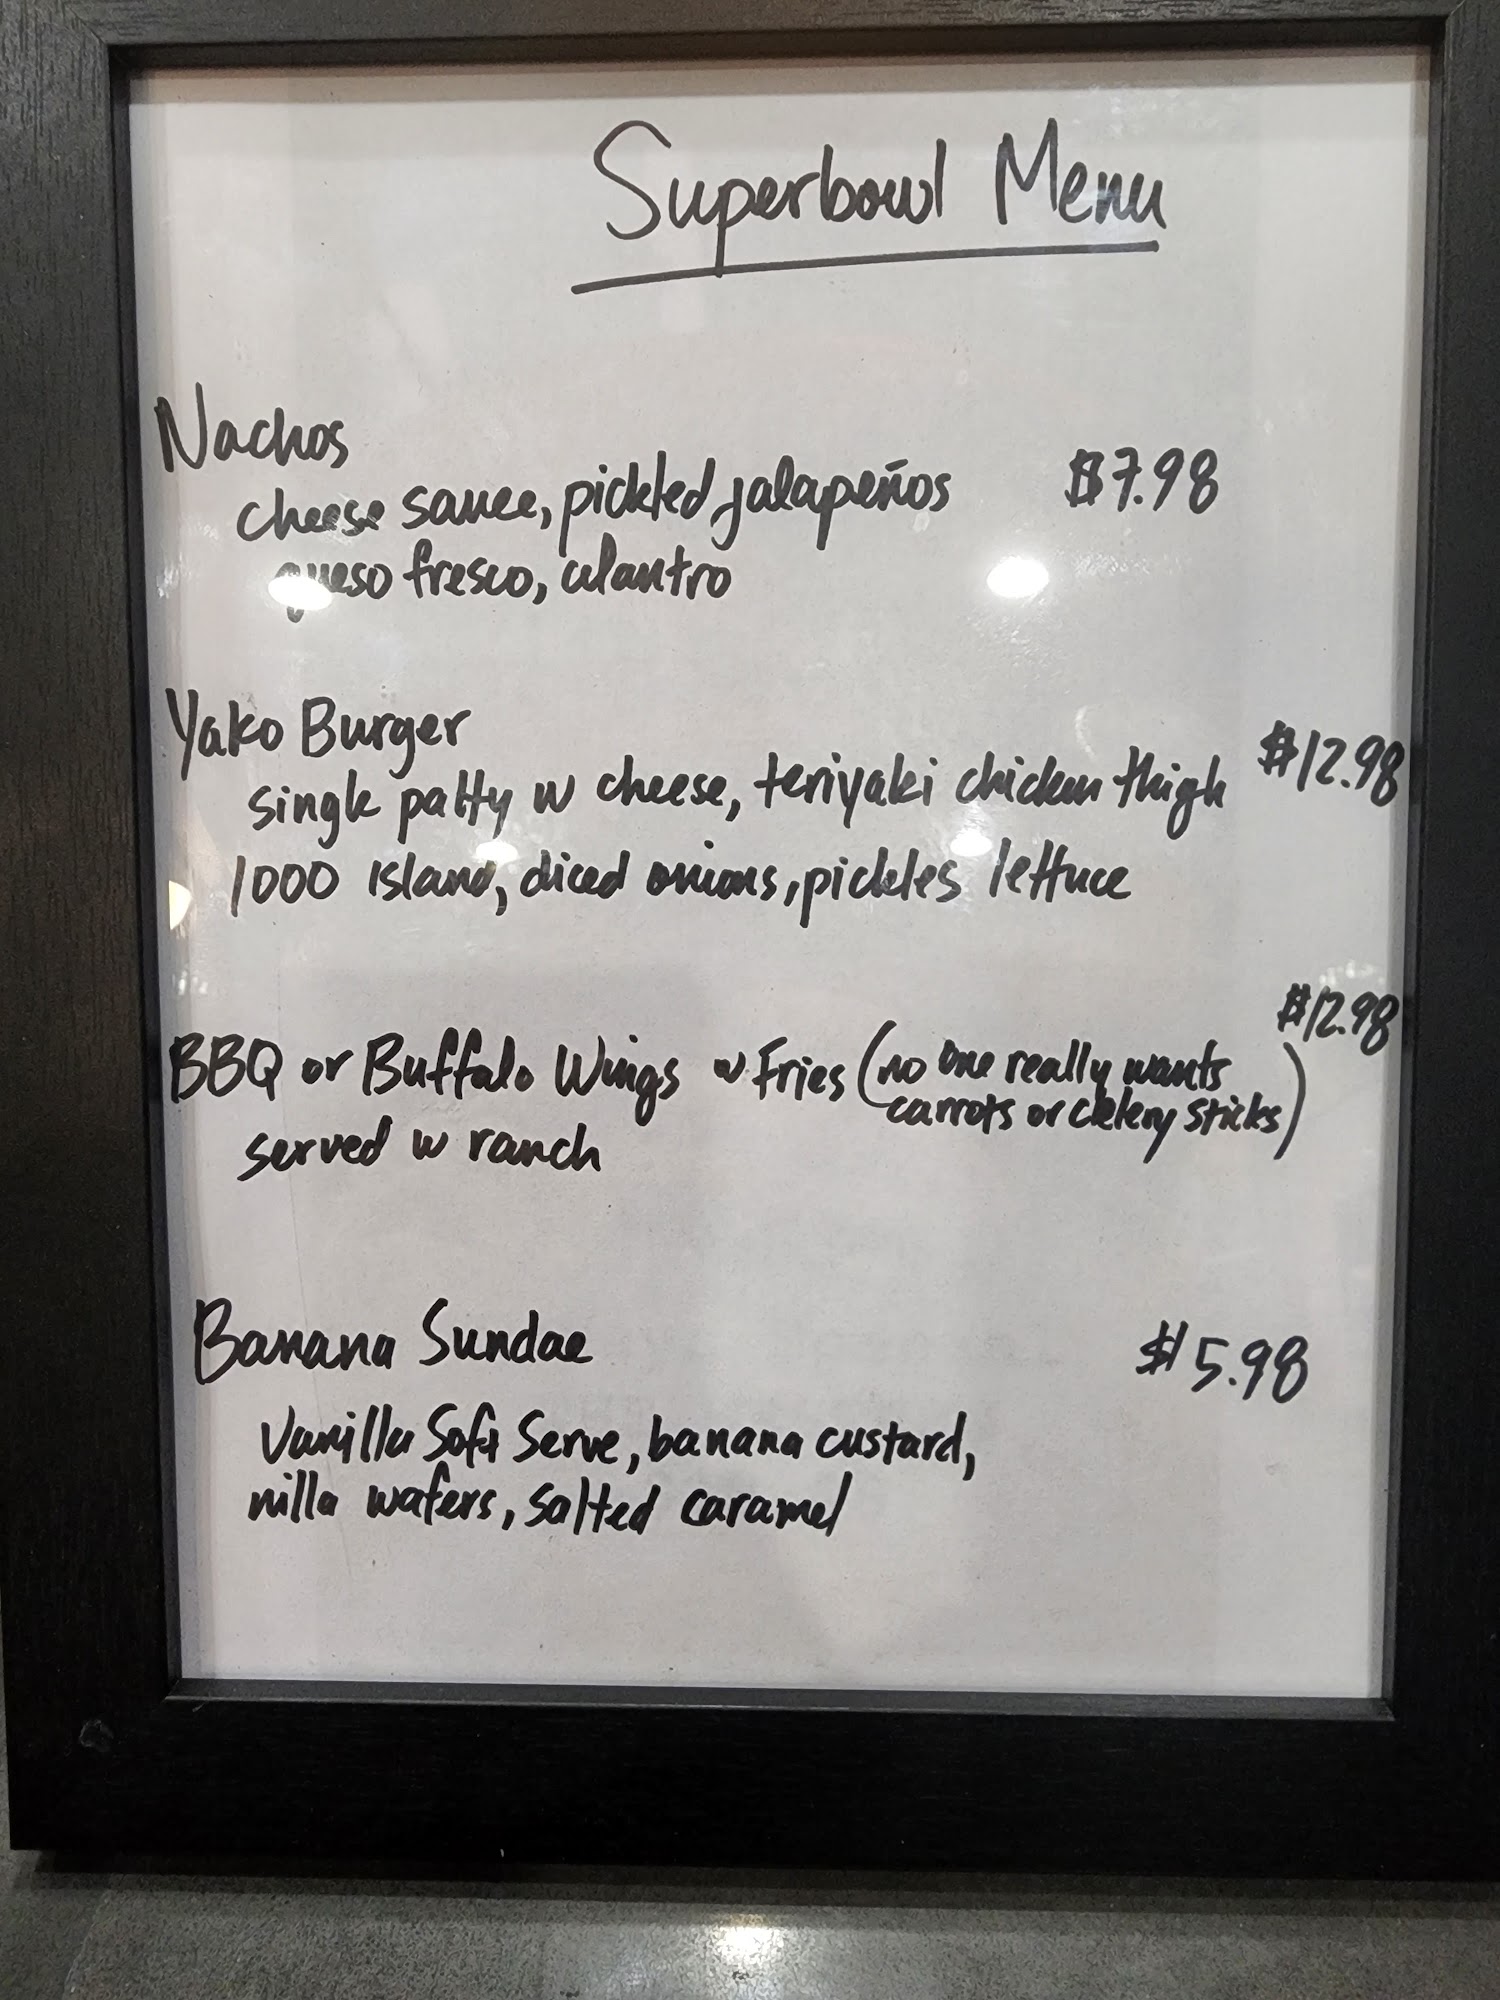 Superbowl Menu
Nachos
cheese sauce, pickled jalapeños $7.98
queso fresco, cilantro
Yako Burger
single patty w cheese, teriyaki chicken thigh $12.98
1000 Island, diced onions, pickles lettuce
$12.98
BBQ or Buffalo Wings w Fries (no one really wants
carrots or celery sticks)
served w ranch
Banana Sundae $5.98
Vanilla Soft Serve, banana custard,
nilla wafers, salted caramel